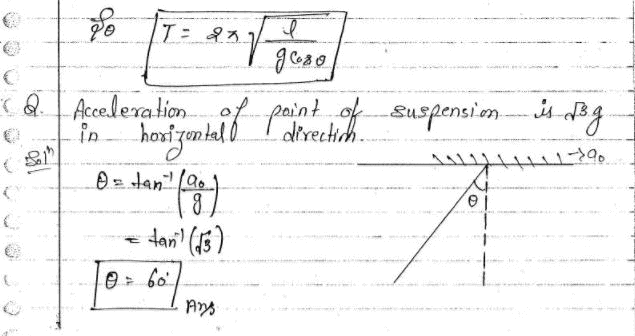 So T = 2π √(l / g cosθ)
Q. Acceleration of point of suspension is √3g
in horizontal direction.
Solⁿ
→ a₀
θ = tan⁻¹ (a₀ / g)
θ
= tan⁻¹ (√3)
θ = 60°
Ans